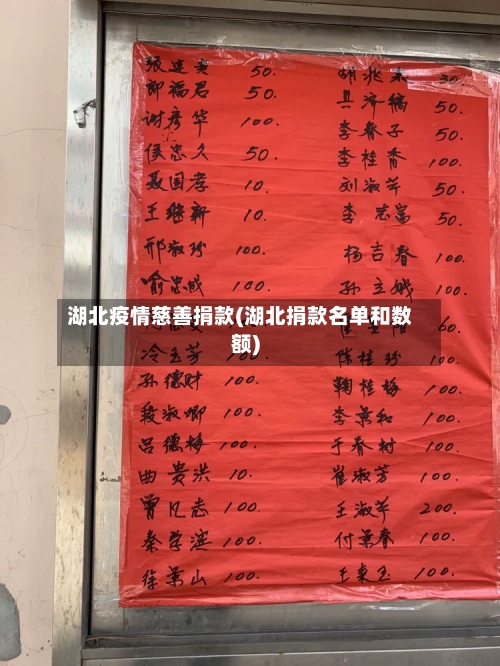 张连美 50.
邵福君 50.
谢彦华 100.
侯忠久 50.
聂国孝 10.
王继新 10.
邢淑珍 100.
喻忠诚 100.
冷玉芳 100.
孙德财 100.
段淑卿 100.
吕德梅 100.
曲贵洪 10.
曾凡志 100.
秦学滨 100.
徐景山 100.
胡兆来 30.
吴济镐 50.
李春子 50.
李桂香 100.
刘淑芹 50.
李志富 50.
杨吉春 100.
孙立娥 100.
60.
陈桂珍 100.
鞠桂梅 100.
李景和 100.
于春树 100.
崔淑芳 100.
王淑芹 200.
付景春 100.
王东玉 100.
湖北疫情慈善捐款(湖北捐款名单和数
额)